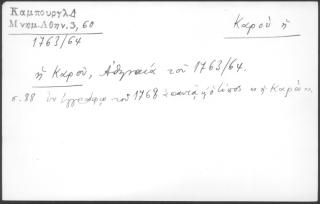 Καμπουργλ.Δ
Μνημ.Αθην.3, 60
Καρού ἡ
1763/64
ἡ Καρού, Ἀθηναία τοῦ 1763/64.
σ. 88 ἐν ἐγγράφῳ τοῦ 1768 ἀπαντᾷ ὁ τύπος " ἡ Καρὰ "